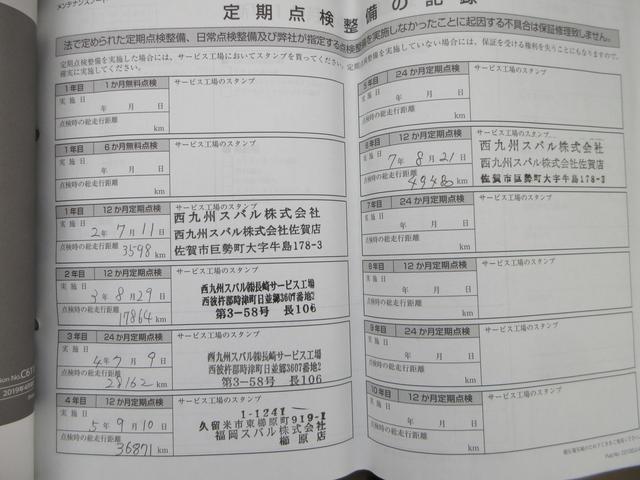 メンテナンスノート
定期点検整備の記録
法で定められた定期点検整備、日常点検整備及び弊社が指定する点検整備を実施しなかったことに起因する不具合は保証修理致しません。
定期点検整備を実施した場合には、サービス工場においてスタンプを貰ってください。定期点検整備を実施していない場合には、保証を受ける権利を失うことにもなりますので、
確実に実施してください。
1年目 1か月無料点検
サービス工場のスタンプ
実施日
年 月 日
点検時の総走行距離
km
1年目 6か月無料点検
サービス工場のスタンプ
実施日
年 月 日
点検時の総走行距離
km
1年目 12か月定期点検
サービス工場のスタンプ
実施日
2年 7月 11日
点検時の総走行距離
3598 km
西九州スバル株式会社
西九州スバル株式会社佐賀店
佐賀市巨勢町大字牛島178-3
2年目 12か月定期点検
サービス工場のスタンプ
実施日
3年 8月 29日
点検時の総走行距離
17864 km
西九州スバル㈱長崎サービス工場
西彼杵郡時津町日並郷3607番地2
第3-58号 長106
3年目 24か月定期点検
サービス工場のスタンプ
実施日
4年 7月 9日
点検時の総走行距離
28162 km
西九州スバル㈱長崎サービス工場
西彼杵郡時津町日並郷3607番地2
第3-58号 長106
4年目 12か月定期点検
サービス工場のスタンプ
実施日
5年 9月 10日
点検時の総走行距離
36871 km
1-1241
久留米市東櫛原町919-1
福岡スバル株式会社
櫛原店
5年目 24か月定期点検
サービス工場のスタンプ
実施日
年 月 日
点検時の総走行距離
km
6年目 12か月定期点検
サービス工場のスタンプ
実施日
7年 8月 21日
点検時の総走行距離
49480 km
西九州スバル株式会社
西九州スバル株式会社佐賀店
佐賀市巨勢町大字牛島178-3
7年目 24か月定期点検
サービス工場のスタンプ
実施日
年 月 日
点検時の総走行距離
km
8年目 12か月定期点検
サービス工場のスタンプ
実施日
年 月 日
点検時の総走行距離
km
9年目 24か月定期点検
サービス工場のスタンプ
実施日
年 月 日
点検時の総走行距離
km
10年目 12か月定期点検
サービス工場のスタンプ
実施日
年 月 日
点検時の総走行距離
km